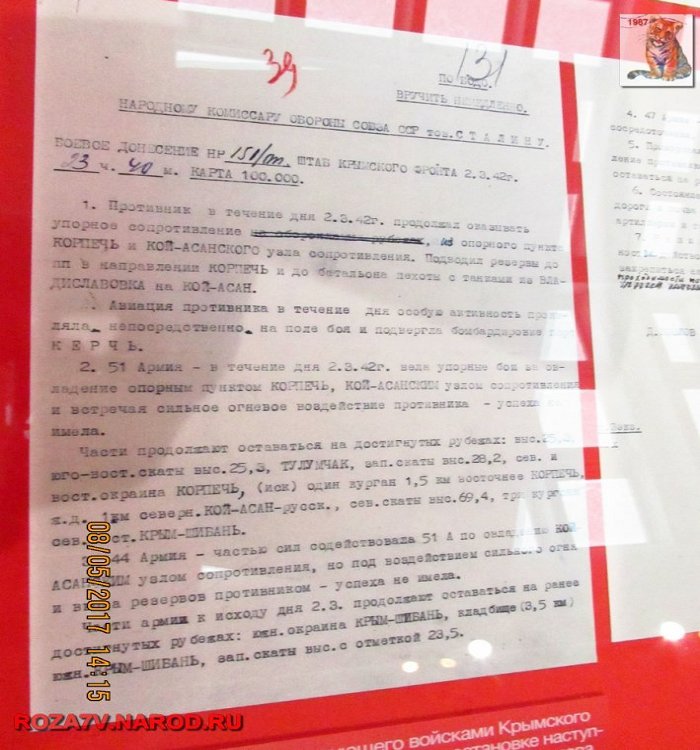 1987
39
131
ПО БОДО.
ВРУЧИТЬ НЕМЕДЛЕННО.
НАРОДНОМУ КОМИССАРУ ОБОРОНЫ СОЮЗА ССР тов. СТАЛИНУ.
БОЕВОЕ ДОНЕСЕНИЕ НР 151/оп. ШТАБ КРЫМСКОГО ФРОНТА 2.3.42г.
23 ч. 40 м. КАРТА 100.000.
1. Противник в течение дня 2.3.42г. продолжал оказывать
упорное сопротивление опорного пункта
КОРПЕЧЬ и КОЙ-АСАНСКОГО узла сопротивления. Подводил резервы до
пп в направлении КОРПЕЧЬ и до батальона пехоты с танками из ВЛА-
ДИСЛАВОВКА на КОЙ-АСАН.
Авиация противника в течение дня особую активность прояв-
ляла непосредственно на поле боя и подвергла бомбардировке
КЕРЧЬ.
2. 51 Армия - в течение дня 2.3.42г. вела упорные бои за ов-
ладение опорным пунктом КОРПЕЧЬ, КОЙ-АСАНСКИМ узлом сопротивления
и встречая сильное огневое воздействие противника - успеха не
имела.
Части продолжают оставаться на достигнутых рубежах: выс.25,3,
юго-вост.скаты выс.25,3, ТУЛУМЧАК, зап.скаты выс.28,2, сев. и
вост.окраина КОРПЕЧЬ, (иск) один курган 1,5 км восточнее КОРПЕЧЬ,
ж.д. 1км северн.КОЙ-АСАН-русск., сев.скаты выс.69,4, три кургана
сев.вост.КРЫМ-ШИБАНЬ.
3. 44 Армия - частью сил содействовала 51 А по овладению КОЙ-
АСАНСКИМ узлом сопротивления, но под воздействием сильного огня
и ввода резервов противником - успеха не имела.
Части армии к исходу дня 2.3. продолжают оставаться на ранее
достигнутых рубежах: южн.окраина КРЫМ-ШИБАНЬ, кладбище (3,5 км)
южн.КРЫМ-ШИБАНЬ, зап.скаты выс.с отметкой 23,5.
4. 47
5.
оставаться на
6. Состояние
дорог
артиллерии
7.
08/05/2017 14:15
ROZA7V.NAROD.RU
войсками Крымского
наступ-